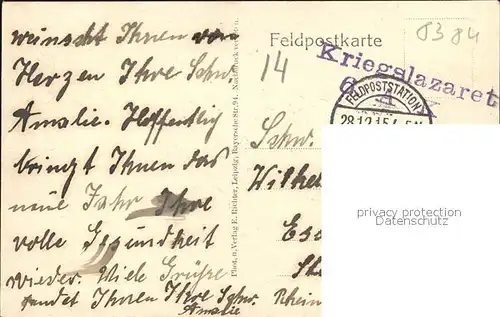 wünscht Ihnen von
Herzen Ihre Schw.
Amalie. Hoffentlich
bringt Ihnen das
neue Jahr Ihre
volle Gesundheit
wieder. Viele Grüße
sendet Ihnen Ihre Schw.
Amalie
Phot. u. Verlag E. Richter, Leipzig, Bayersche Str. 91. Nachdruck verboten.
Feldpostkarte
8384
14
Kriegslazaret
6 A
FELDPOSTSTATION
28.12.15
Schw.
Wilhe
Rhein
privacy protection
Datenschutz